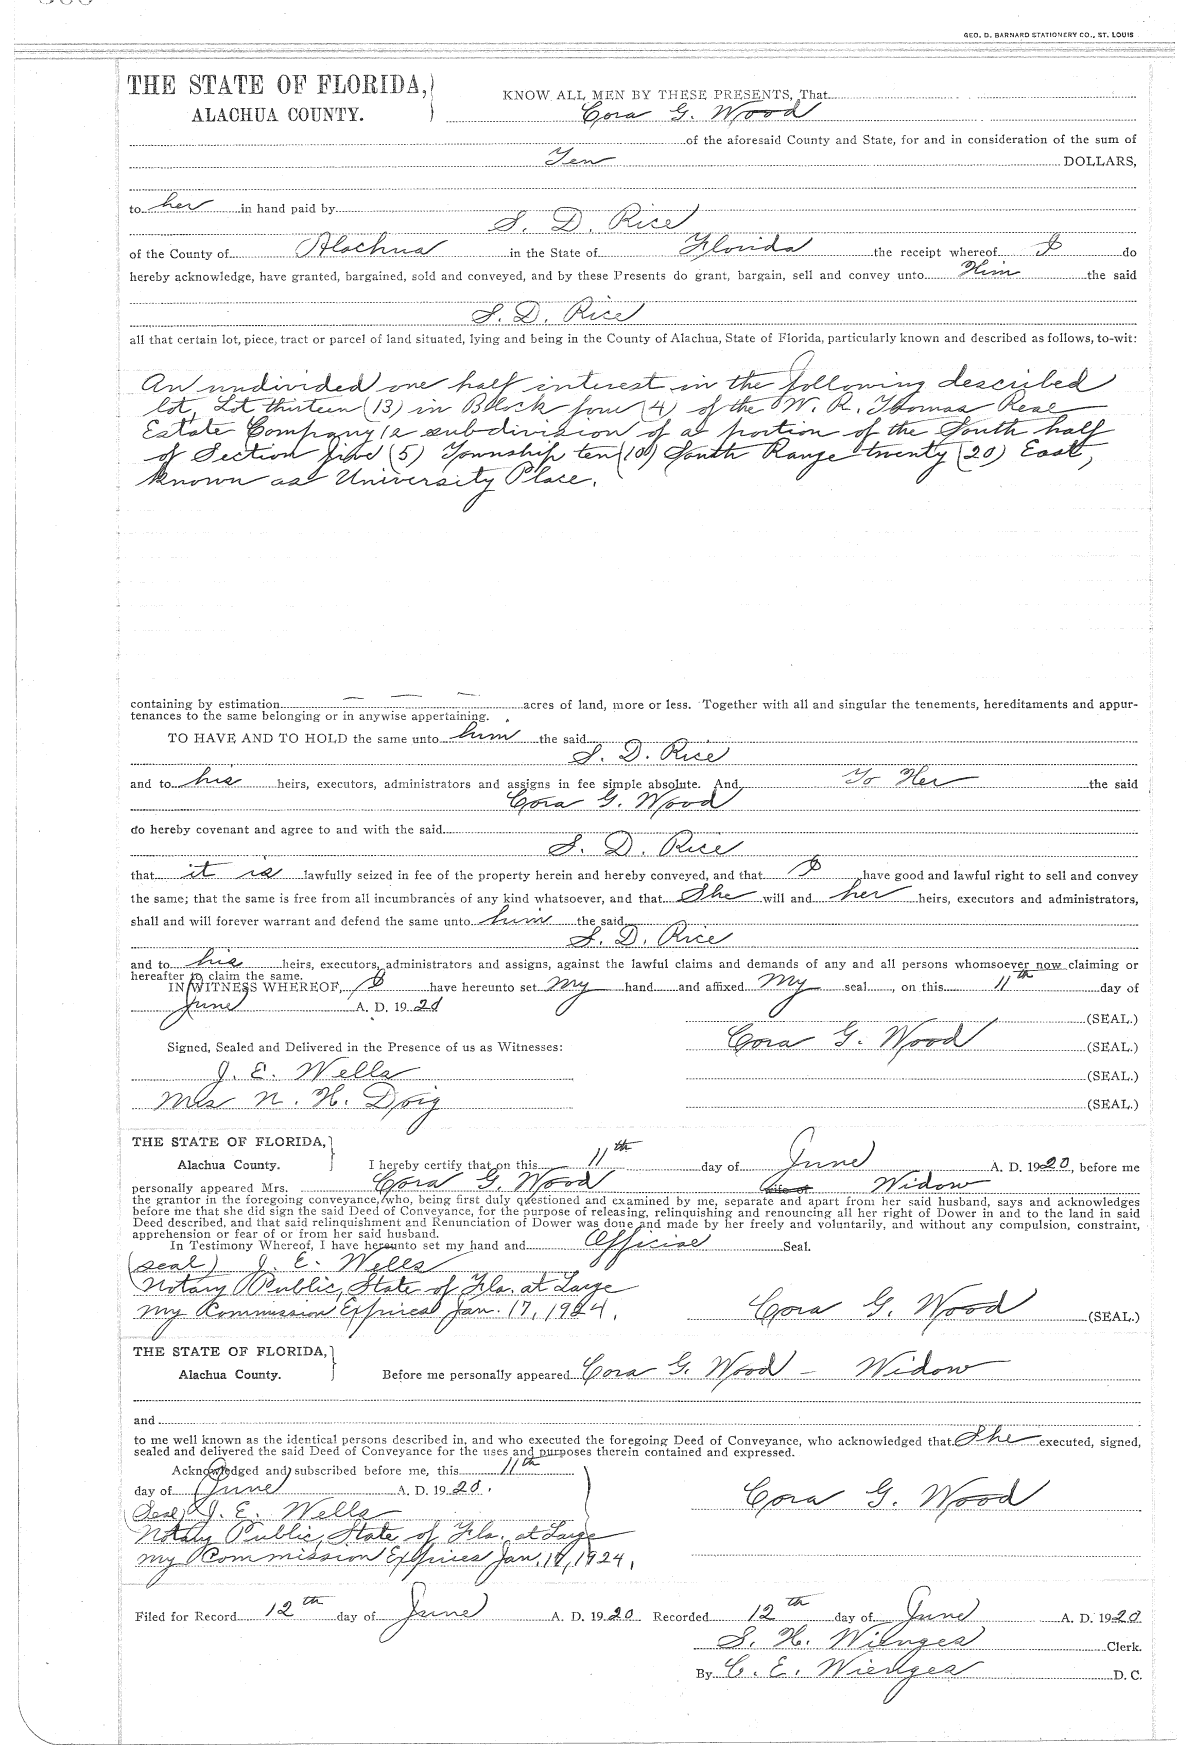 GEO. D. BARNARD STATIONERY CO., ST. LOUIS
THE STATE OF FLORIDA,
ALACHUA COUNTY.
KNOW ALL MEN BY THESE PRESENTS, That
Cora G. Wood
of the aforesaid County and State, for and in consideration of the sum of
Ten DOLLARS,
to her in hand paid by
S. D. Rice
of the County of Alachua in the State of Florida the receipt whereof I do
hereby acknowledge, have granted, bargained, sold and conveyed, and by these Presents do grant, bargain, sell and convey unto Him the said
S. D. Rice
all that certain lot, piece, tract or parcel of land situated, lying and being in the County of Alachua, State of Florida, particularly known and described as follows, to-wit:
An undivided one half interest in the following described
lot, Lot thirteen (13) in Block four (4) of the W. R. Thomas Real
Estate Company (a sub-division of a portion of the South half
of Section five (5) Township ten (10) South Range twenty (20) East,
known as University Place.
containing by estimation — — — acres of land, more or less. Together with all and singular the tenements, hereditaments and appur-
tenances to the same belonging or in anywise appertaining.
TO HAVE AND TO HOLD the same unto him the said
S. D. Rice
and to his heirs, executors, administrators and assigns in fee simple absolute. And To Her the said
Cora G. Wood
do hereby covenant and agree to and with the said
S. D. Rice
that it is lawfully seized in fee of the property herein and hereby conveyed, and that I have good and lawful right to sell and convey
the same; that the same is free from all incumbrances of any kind whatsoever, and that She will and her heirs, executors and administrators,
shall and will forever warrant and defend the same unto him the said
S. D. Rice
and to his heirs, executors, administrators and assigns, against the lawful claims and demands of any and all persons whomsoever now claiming or
hereafter to claim the same.
IN WITNESS WHEREOF, I have hereunto set my hand and affixed My seal, on this 11th day of
June A. D. 1920
(SEAL.)
Signed, Sealed and Delivered in the Presence of us as Witnesses:
Cora G. Wood (SEAL.)
J. E. Wells (SEAL.)
Mrs N. H. Doig (SEAL.)
THE STATE OF FLORIDA,
Alachua County.
I hereby certify that on this 11th day of June A. D. 1920, before me
personally appeared Mrs. Cora G. Wood wife of Widow
the grantor in the foregoing conveyance, who, being first duly questioned and examined by me, separate and apart from her said husband, says and acknowledges
before me that she did sign the said Deed of Conveyance, for the purpose of releasing, relinquishing and renouncing all her right of Dower in and to the land in said
Deed described, and that said relinquishment and Renunciation of Dower was done and made by her freely and voluntarily, and without any compulsion, constraint,
apprehension or fear of or from her said husband.
In Testimony Whereof, I have hereunto set my hand and Official Seal.
(seal) J. E. Wells
Notary Public, State of Fla. at Large
My Commission Expires Jan. 17, 1924.
Cora G. Wood (SEAL.)
THE STATE OF FLORIDA,
Alachua County.
Before me personally appeared Cora G. Wood - Widow
and
to me well known as the identical persons described in, and who executed the foregoing Deed of Conveyance, who acknowledged that She executed, signed,
sealed and delivered the said Deed of Conveyance for the uses and purposes therein contained and expressed.
Acknowledged and subscribed before me, this 11th
day of June A. D. 1920.
Cora G. Wood
(Seal) J. E. Wells
Notary Public, State of Fla. at Large
My Commission Expires Jan. 17, 1924.
Filed for Record 12th day of June A. D. 1920 Recorded 12th day of June A. D. 1920
S. H. Wienges Clerk.
By C. E. Wienges D. C.